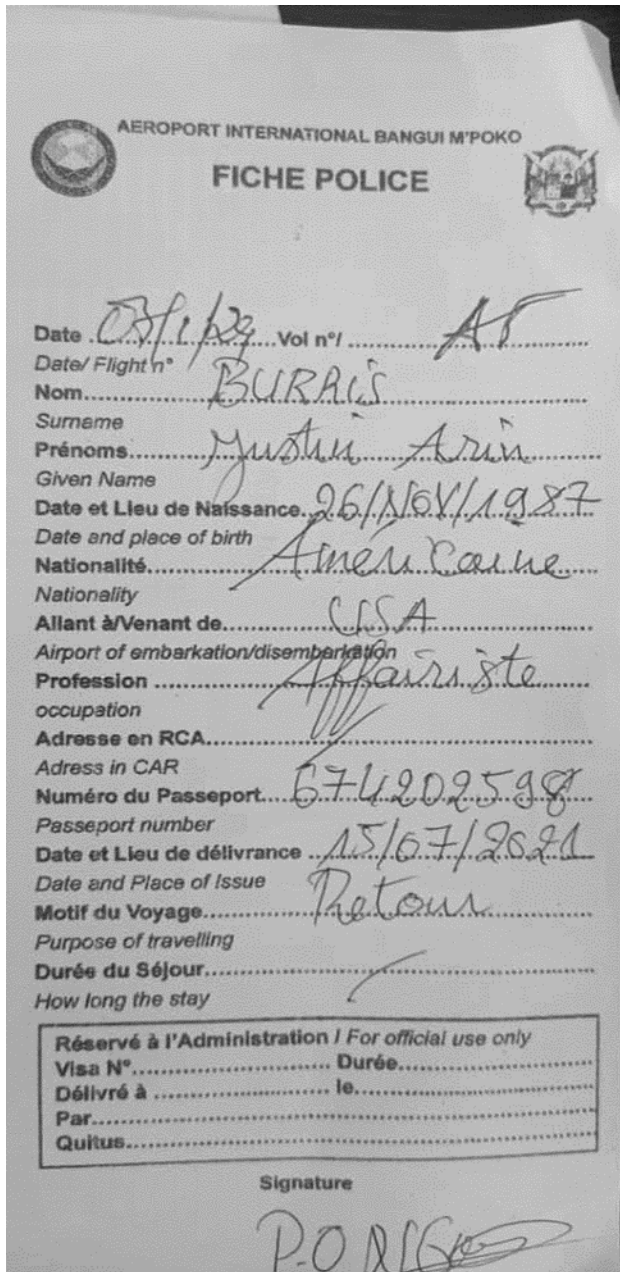 AEROPORT INTERNATIONAL BANGUI M'POKO
FICHE POLICE
Date ............Vol n°/ .... AF
Date/ Flight n°
Nom........ BURRIS
Surname
Prénoms........ Justin Arin
Given Name
Date et Lieu de Naissance..26/NOV/1987
Date and place of birth
Nationalité........ Américaine
Nationality
Allant à/Venant de........ USA
Airport of embarkation/disembarkation
Profession ........ Affairiste
occupation
Adresse en RCA........
Adress in CAR
Numéro du Passeport....674202598
Passeport number
Date et Lieu de délivrance ..15/07/2021
Date and Place of Issue
Motif du Voyage........ Retour
Purpose of travelling
Durée du Séjour........
How long the stay
Réservé à l'Administration / For official use only
Visa N°........ Durée........
Délivré à ........ le........
Par........
Quitus........
Signature
P.O